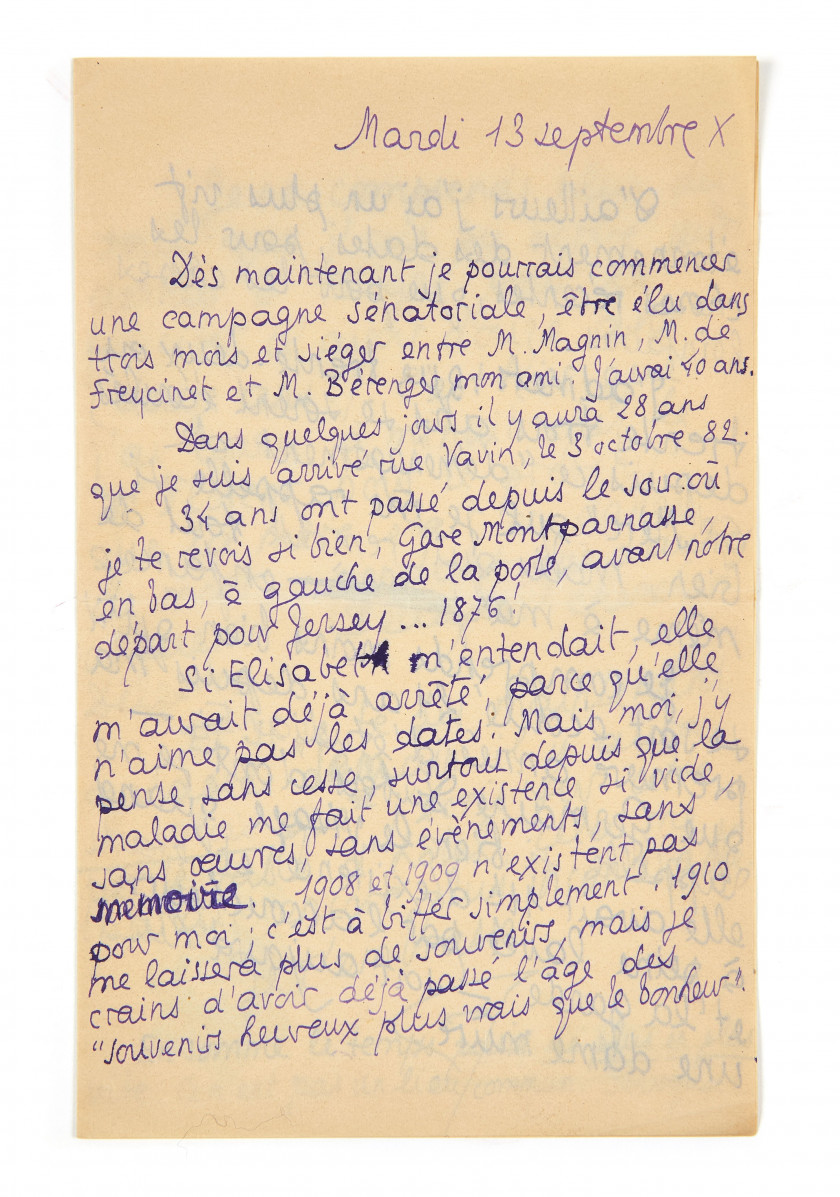 Mardi 13 septembre X
Dès maintenant je pourrais commencer
une campagne sénatoriale, être élu dans
trois mois et siéger entre M. Magnin, M. de
Freycinet et M. Bérenger mon ami. J'aurai 40 ans.
Dans quelques jours il y aura 28 ans
que je suis arrivé rue Vavin, le 3 octobre 82.
34 ans ont passé depuis le soir où
je te revois si bien, Gare Montparnasse,
en bas, à gauche de la porte, avant notre
départ pour Jersey... 1876!
Si Elisabeth m'entendait, elle
m'aurait déjà arrêté, parce qu'elle
n'aime pas les dates. Mais moi, j'y
pense sans cesse, surtout depuis que la
maladie me fait une existence si vide,
sans œuvres, sans évènements, sans
mémoire. 1908 et 1909 n'existent pas
pour moi; c'est à biffer simplement. 1910
me laissera plus de souvenirs, mais je
crains d'avoir déjà passé l'âge des
"souvenirs heureux plus vrais que le bonheur".